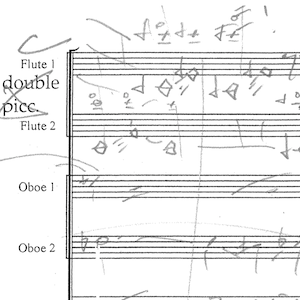 Flute 1
double
picc.
Flute 2
Oboe 1
Oboe 2